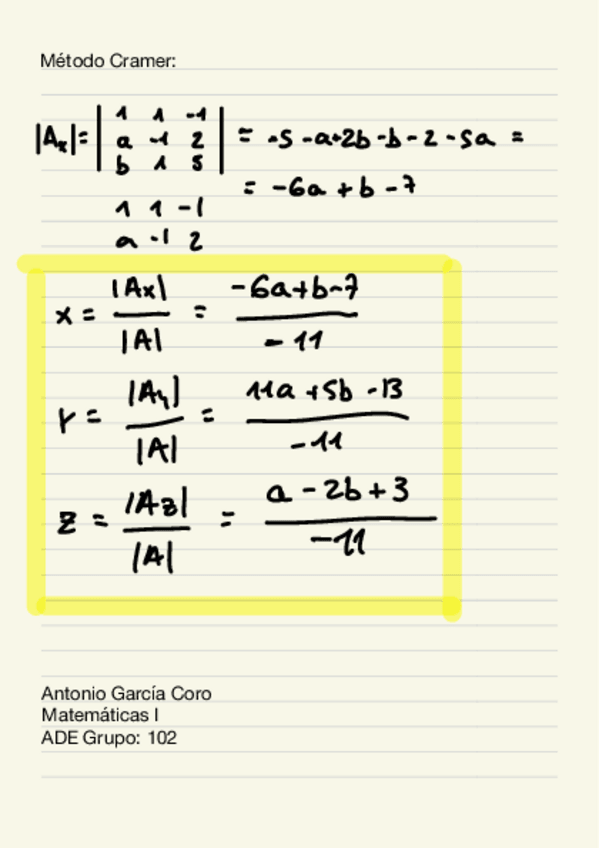 Método Cramer:
|Ax| = | 1 1 -1 | = -5 -a+2b -b -2 -5a =
| a -1 2 |
| b 1 5 |
= -6a + b - 7
1 1 -1
a -1 2
x = |Ax| / |A| = -6a+b-7 / -11
Y = |Ay| / |A| = 11a + 5b - 13 / -11
z = |Az| / |A| = a - 2b + 3 / -11
Antonio García Coro
Matemáticas I
ADE Grupo: 102